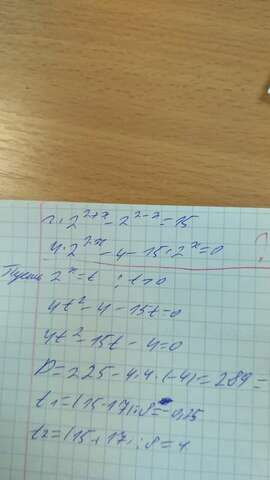 2^{2+x} - 2^{2-x} = 15
4·2^{2x} - 4 - 15·2^x = 0
Пусть 2^x = t ; t>0
4t² - 4 - 15t = 0
4t² - 15t - 4 = 0
D = 225 - 4·4·(-4) = 289 =
t₁ = (15-17):8 = -0,25
t₂ = (15+17):8 = 4